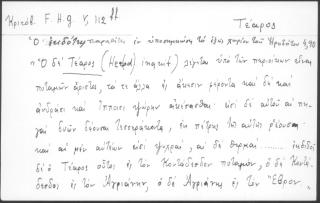 Κριτόβ. F.H.G. V, 112 ff
Τέαρος
"Ὁ δὲ Τέαρος (Herod) λέγεται ὑπὸ τῶν περιοίκων εἶναι
ποταμῶν ἄριστος, τά τε ἄλλα ἐς ἄκεσιν φέροντα καὶ δὴ καὶ
ἀνδράσι καὶ ἵπποισι ψώρην ἀκέσασθαι. εἰσὶ δὲ αὐτοῦ αἱ πη-
γαὶ δυῶν δέουσαι τεσσεράκοντα, ἐκ πέτρης τῆς αὐτῆς ῥέουσαι
καὶ αἱ μὲν αὐτέων εἰσὶ ψυχραί, αἱ δὲ θερμαί ........ ἐκδιδοῖ
δὲ ὁ Τέαρος οὗτος ἐς τὸν Κοντάδεσδον ποταμόν, ὁ δὲ Κοντά-
δεσδος ἐς τὸν Ἀγριάνην, ὁ δὲ Ἀγριάνης ἐς τὸν Ἕβρον"